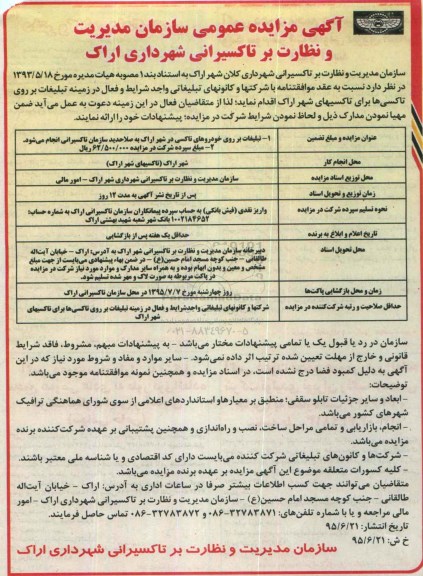 آگهی مزایده عمومی سازمان مدیریت
و نظارت بر تاکسیرانی شهرداری اراک
سازمان مدیریت و نظارت بر تاکسیرانی شهرداری کلان شهر اراک به استناد بند ۱ مصوبه هیات مدیره مورخ ۱۳۹۳/۵/۱۸
در نظر دارد نسبت به عقد موافقتنامه با شرکتها و کانونهای تبلیغاتی واجد شرایط و فعال در زمینه تبلیغات بر روی
تاکسی‌ها برای تاکسیهای شهر اراک اقدام نماید؛ لذا از متقاضیان فعال در این زمینه دعوت به عمل می‌آید ضمن
مهیا نمودن مدارک ذیل و لحاظ نمودن شرایط شرکت در مزایده؛ پیشنهادات خود را ارائه نمایند.
عنوان مزایده و مبلغ تضمین
۱- تبلیغات بر روی خودروهای تاکسی در شهر اراک به صلاحدید سازمان تاکسیرانی انجام می‌شود.
۲- مبلغ سپرده شرکت در مزایده ۶۲/۵۰۰/۰۰۰ ریال
محل انجام کار
شهر اراک (تاکسیهای شهر اراک)
محل توزیع اسناد مزایده
سازمان مدیریت و نظارت بر تاکسیرانی شهرداری شهر اراک – امور مالی
زمان توزیع و تحویل اسناد
پس از تاریخ نشر آگهی به مدت ۱۲ روز
نحوه تسلیم سپرده شرکت در مزایده
واریز نقدی (فیش بانکی) به حساب سپرده پیمانکاران سازمان تاکسیرانی اراک به شماره حساب:
۱۰۰۲۱۸۴۶۵۲ بانک شهر شعبه شهید بهشتی اراک
تاریخ اعلام و ابلاغ به برنده
حداقل یک هفته پس از بازگشایی
محل تحویل اسناد
دبیرخانه سازمان مدیریت و نظارت بر تاکسیرانی شهر اراک به آدرس: اراک – خیابان آیت‌اله
طالقانی – جنب کوچه مسجد امام حسین(ع) – در ضمن بهاء پیشنهادی می‌بایست از جهت مبلغ
مشخص و معین و بدون ابهام بوده و به همراه سایر مدارک و موارد مورد نیاز شرکت در مزایده
در پاکت مربوطه به صورت لاک و مهر شده تسلیم شود.
زمان و محل بازگشایی پاکت‌ها
روز چهارشنبه مورخ ۱۳۹۵/۷/۷ در محل سازمان تاکسیرانی اراک
حداقل صلاحیت و رتبه شرکت‌کننده در مزایده
شرکتها و کانونهای تبلیغاتی واجدشرایط و فعال در زمینه تبلیغات بر روی تاکسی‌ها برای تاکسیهای
شهر اراک
۰۲۱-۸۸۳۴۹۶۷۰-۵
سازمان در رد یا قبول یک یا تمامی پیشنهادات مختار می‌باشد – به پیشنهادات مبهم، مشروط، فاقد شرایط
قانونی و خارج از مهلت تعیین شده ترتیب اثر داده نمی‌شود. – سایر موارد و مفاد و شروط مورد نیاز که در این
آگهی به دلیل کمبود فضا درج نشده است، در اسناد مزایده و همچنین نمونه موافقتنامه موجود می‌باشد.
توضیحات:
- ابعاد و سایر جزئیات تابلو سقفی؛ منطبق بر معیارها و استانداردهای اعلامی از سوی شورای هماهنگی ترافیک
شهرهای کشور می‌باشد.
- انجام، بازاریابی و تمامی مراحل ساخت، نصب و راه‌اندازی و همچنین پشتیبانی بر عهده شرکت‌کننده برنده
مزایده می‌باشد.
- شرکت‌ها و کانون‌های تبلیغاتی شرکت کننده می‌بایست دارای کد اقتصادی و یا شناسه ملی معتبر باشند.
- کلیه کسورات متعلقه موضوع این آگهی مزایده بر عهده برنده مزایده می‌باشد.
متقاضیان می‌توانند جهت کسب اطلاعات بیشتر صرفا در ساعات اداری به آدرس: اراک – خیابان آیت‌اله
طالقانی – جنب کوچه مسجد امام حسین(ع) – سازمان مدیریت و نظارت بر تاکسیرانی شهرداری اراک – امور
مالی مراجعه و یا با شماره تلفن‌های: ۳۲۷۸۳۸۷۱-۰۸۶ و ۳۲۷۸۳۸۷۲-۰۸۶ تماس حاصل فرمایند.
تاریخ انتشار: ۹۵/۶/۲۱
خ ش: ۹۵/۶/۲۱
سازمان مدیریت و نظارت بر تاکسیرانی شهرداری اراک